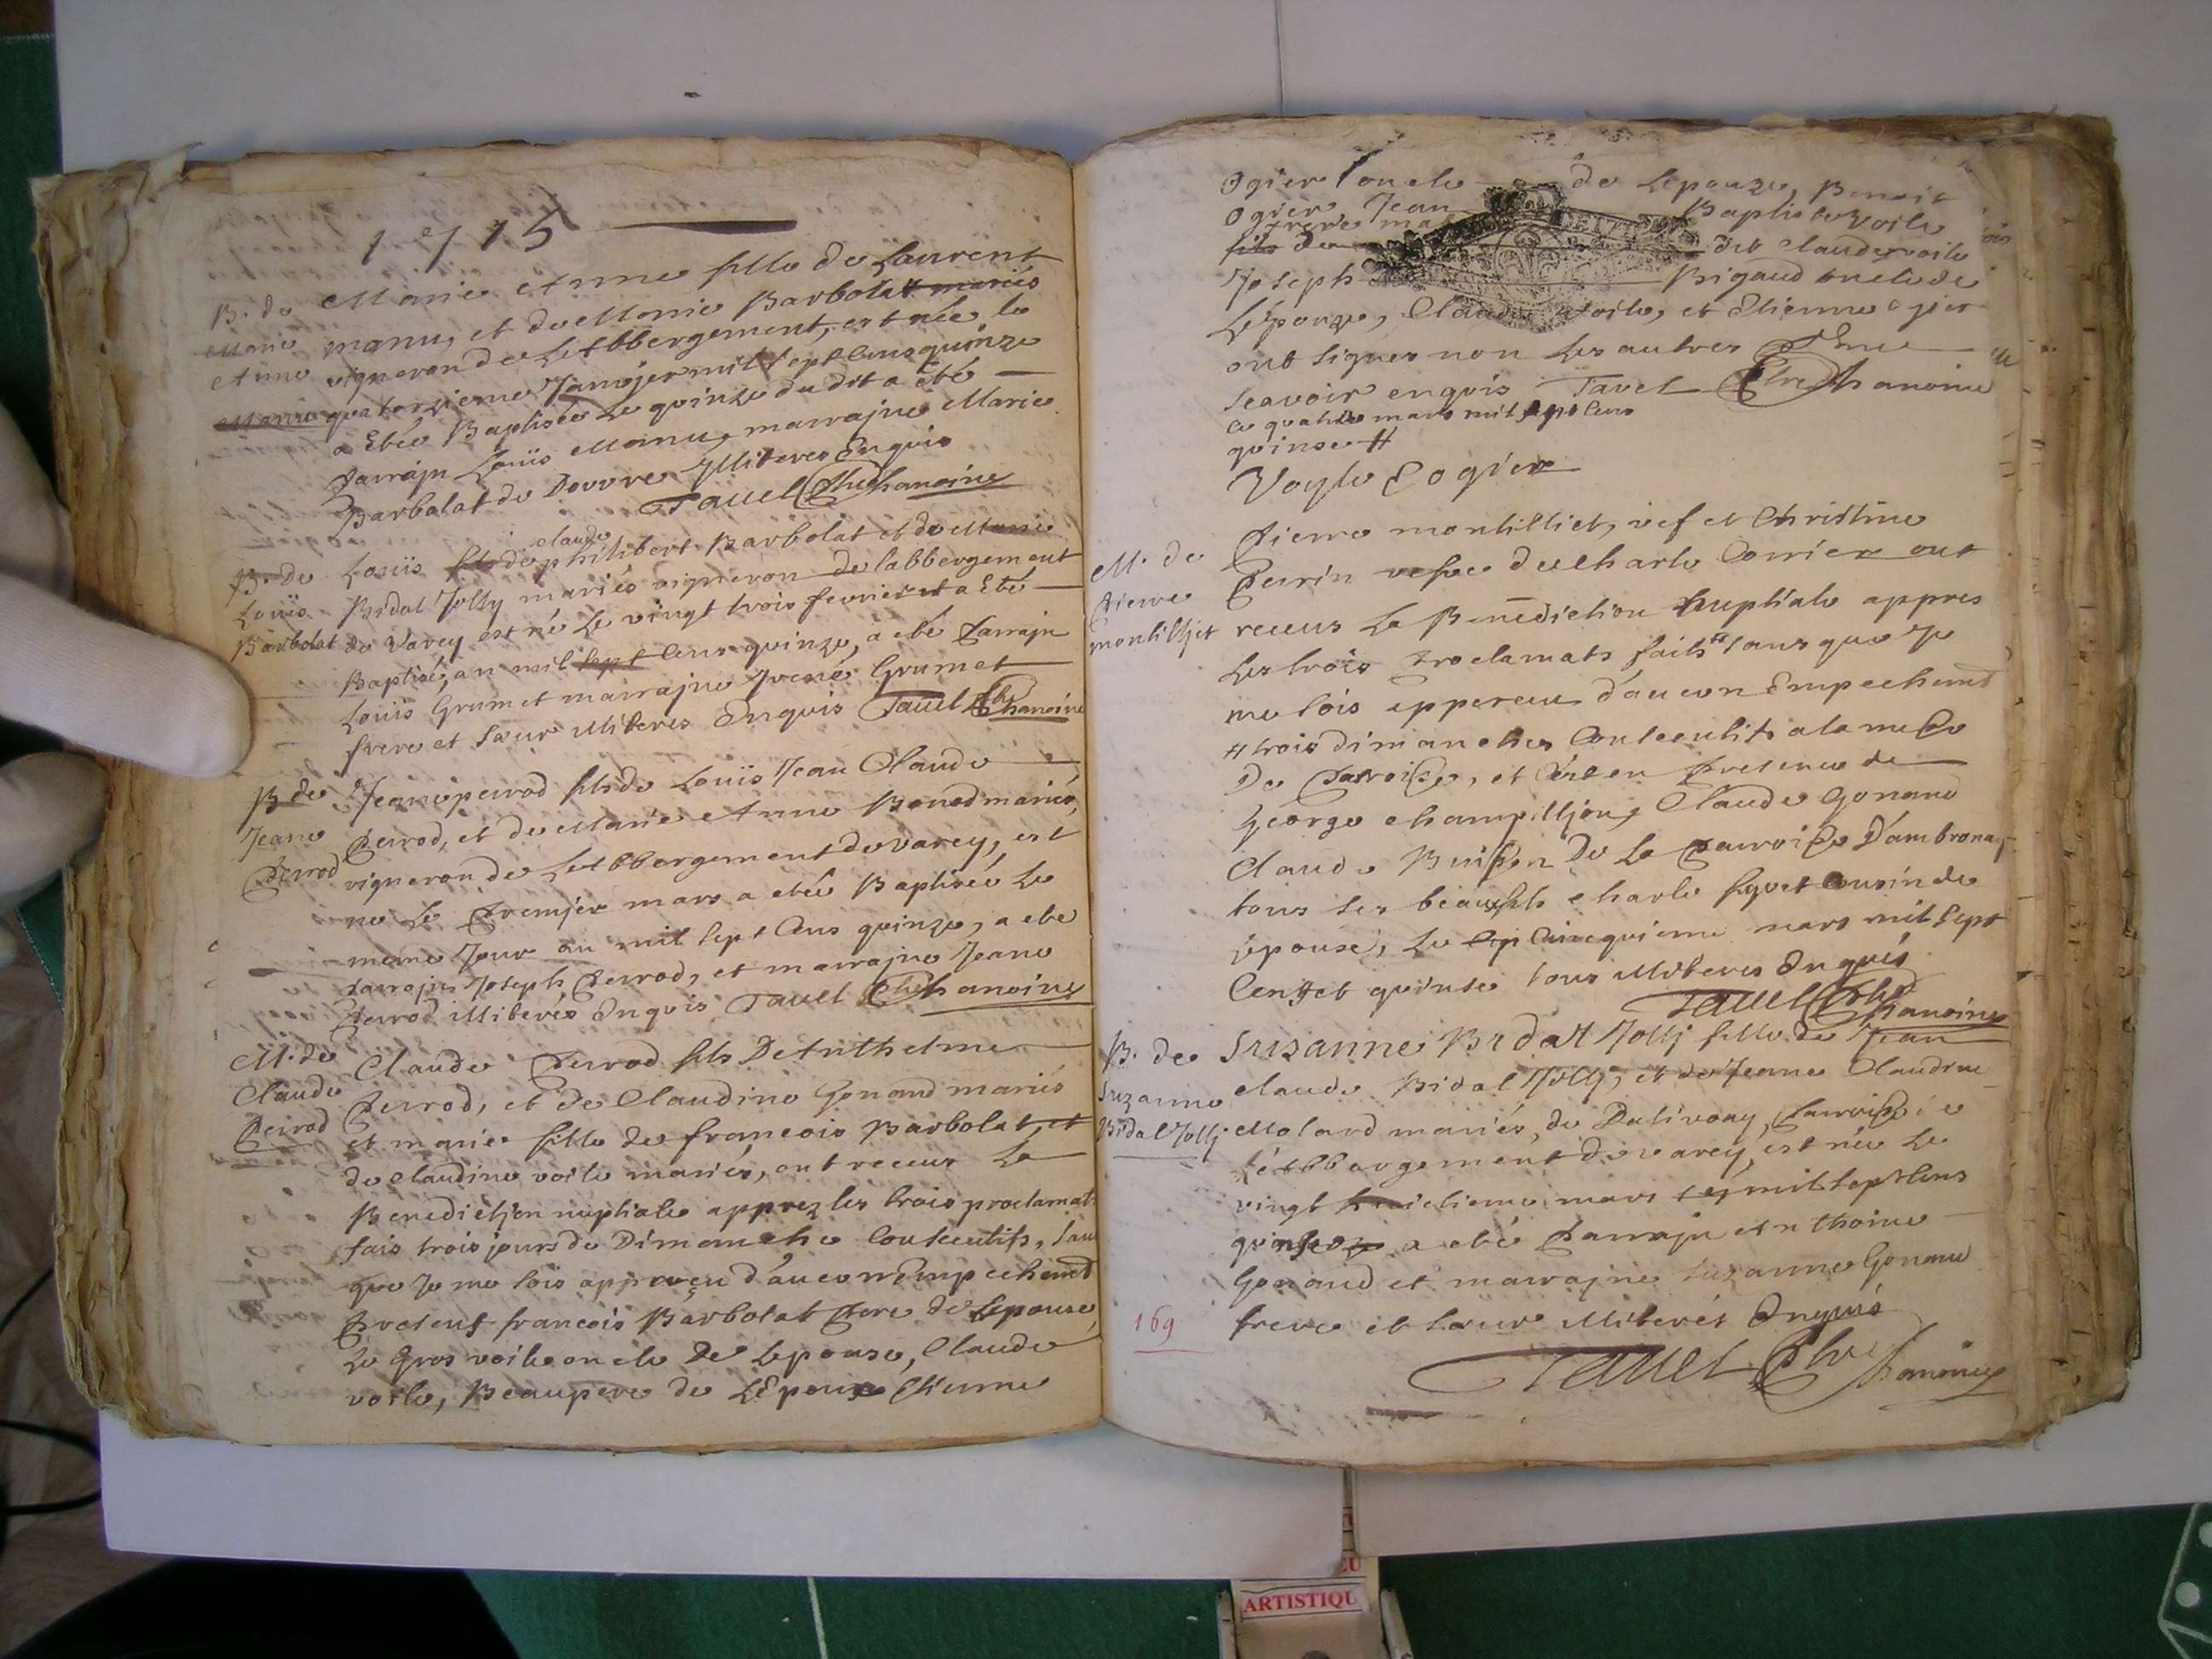 1715
B. de Marie Anne fille de Laurent
Marie manu, et de Marie Barbolat mariés
Anne vigneron de L'Abbergement, est née le
Manu quatorzieme Janvjer mil sept cens quinze
a Eté Baptisée le quinze du dit a été
parrajn Louïs Manu, marrajne Marie
Barbolat de Douvre Illiteres Enquis
Tavel Ptre Chanoine
claude
B. De Louïs fils de philibert Barbolat et de Marie
Louïs Bidal Jolly mariés vigneron de labbergement
Barbolat de Varey est né le vingt trois fevrier et a Eté
Baptisé, an mil sept Cens quinze, a eté Parrajn
Louïs Grumet marrajne Grumet
frere et Sœur illiteres Enquis Tavel Ptre Chanoine
B de Jeane perrod fils de Louïs Jean Claude
Jeane Perrod, et de Marie Anne Bonod mariés,
Perrod vigneron de L'Abbergement de varey, est
ne le premjer mars a etée Baptisée le
meme Jour an mil sept Cens quinze, a ete
parrajn Joseph Perrod, et marrajne Jeane
Perrod illiterés Enquis Tavel Ptre Chanoine
M. de Claude Perrod fils De Anthelme
Claude Perrod, et de Claudine Gonand mariés
Perrod et marie fille de francois Barbolat, et
de Claudine voile mariés, ont receus La
Benedictjon nuptiale apprez les trois proclamats
fais trois jours de Dimanche Consecutifs, sans
que Je me sois apperceu d'aucun Empechement
Presens francois Barbolat Pere de Lepouse,
Le Gros voile oncle De Lepouse, Claude
voile, Beaupere de LEpouse Etienne
Ogier oncle de Lepouze, Benoit
Ogier Jean Baptiste Voile
frere
fils de dit Claude voile
Joseph Bigaud oncle de
Lépouze, Claude voile, et Etienne Ogier
ont signes non les autres
scavoir enquis Tavel Ptre Chanoine
ce quatre mars mil sept Cens
quinse #
Voyle E ogier
Pierre montilliet, vef et Christine
M. de Perrin vefve de Charle Corrier ont
Pierre
montilljet receus La Benediction Nuptiale appres
Les trois Proclamats faits # sans que Je
me sois apperceu d'aucun Empechement
# trois dimanches Consecutifs a la messe
De Parroisse, et Ce en Presence de
George champilljon, Claude Gonand
Claude Buisson De La Parroisse D'ambronay
tous ses beaufils charle cousin de
épouse, le Cincquieme mars mil sept
Cens et quinse tous illiteres Enquis
Tavel Ptre Chanoine
B. de Suzanne Bidal Jollj fille de Jean
Suzanne claude Bidal Jolly, et de Jeane Claudine
Bidal Jollj Molard mariés, de Dalivoay, Parroisse
L'Abbergement de varey, est née le
vingt huictieme mars mil sept Cens
quinse a eté Parrajn Anthoine
Gonand et marrajne Suzanne Gonand
169 frere et sœur illiterés Enquis
Tavel Ptre Chanoine
ARTISTIQU